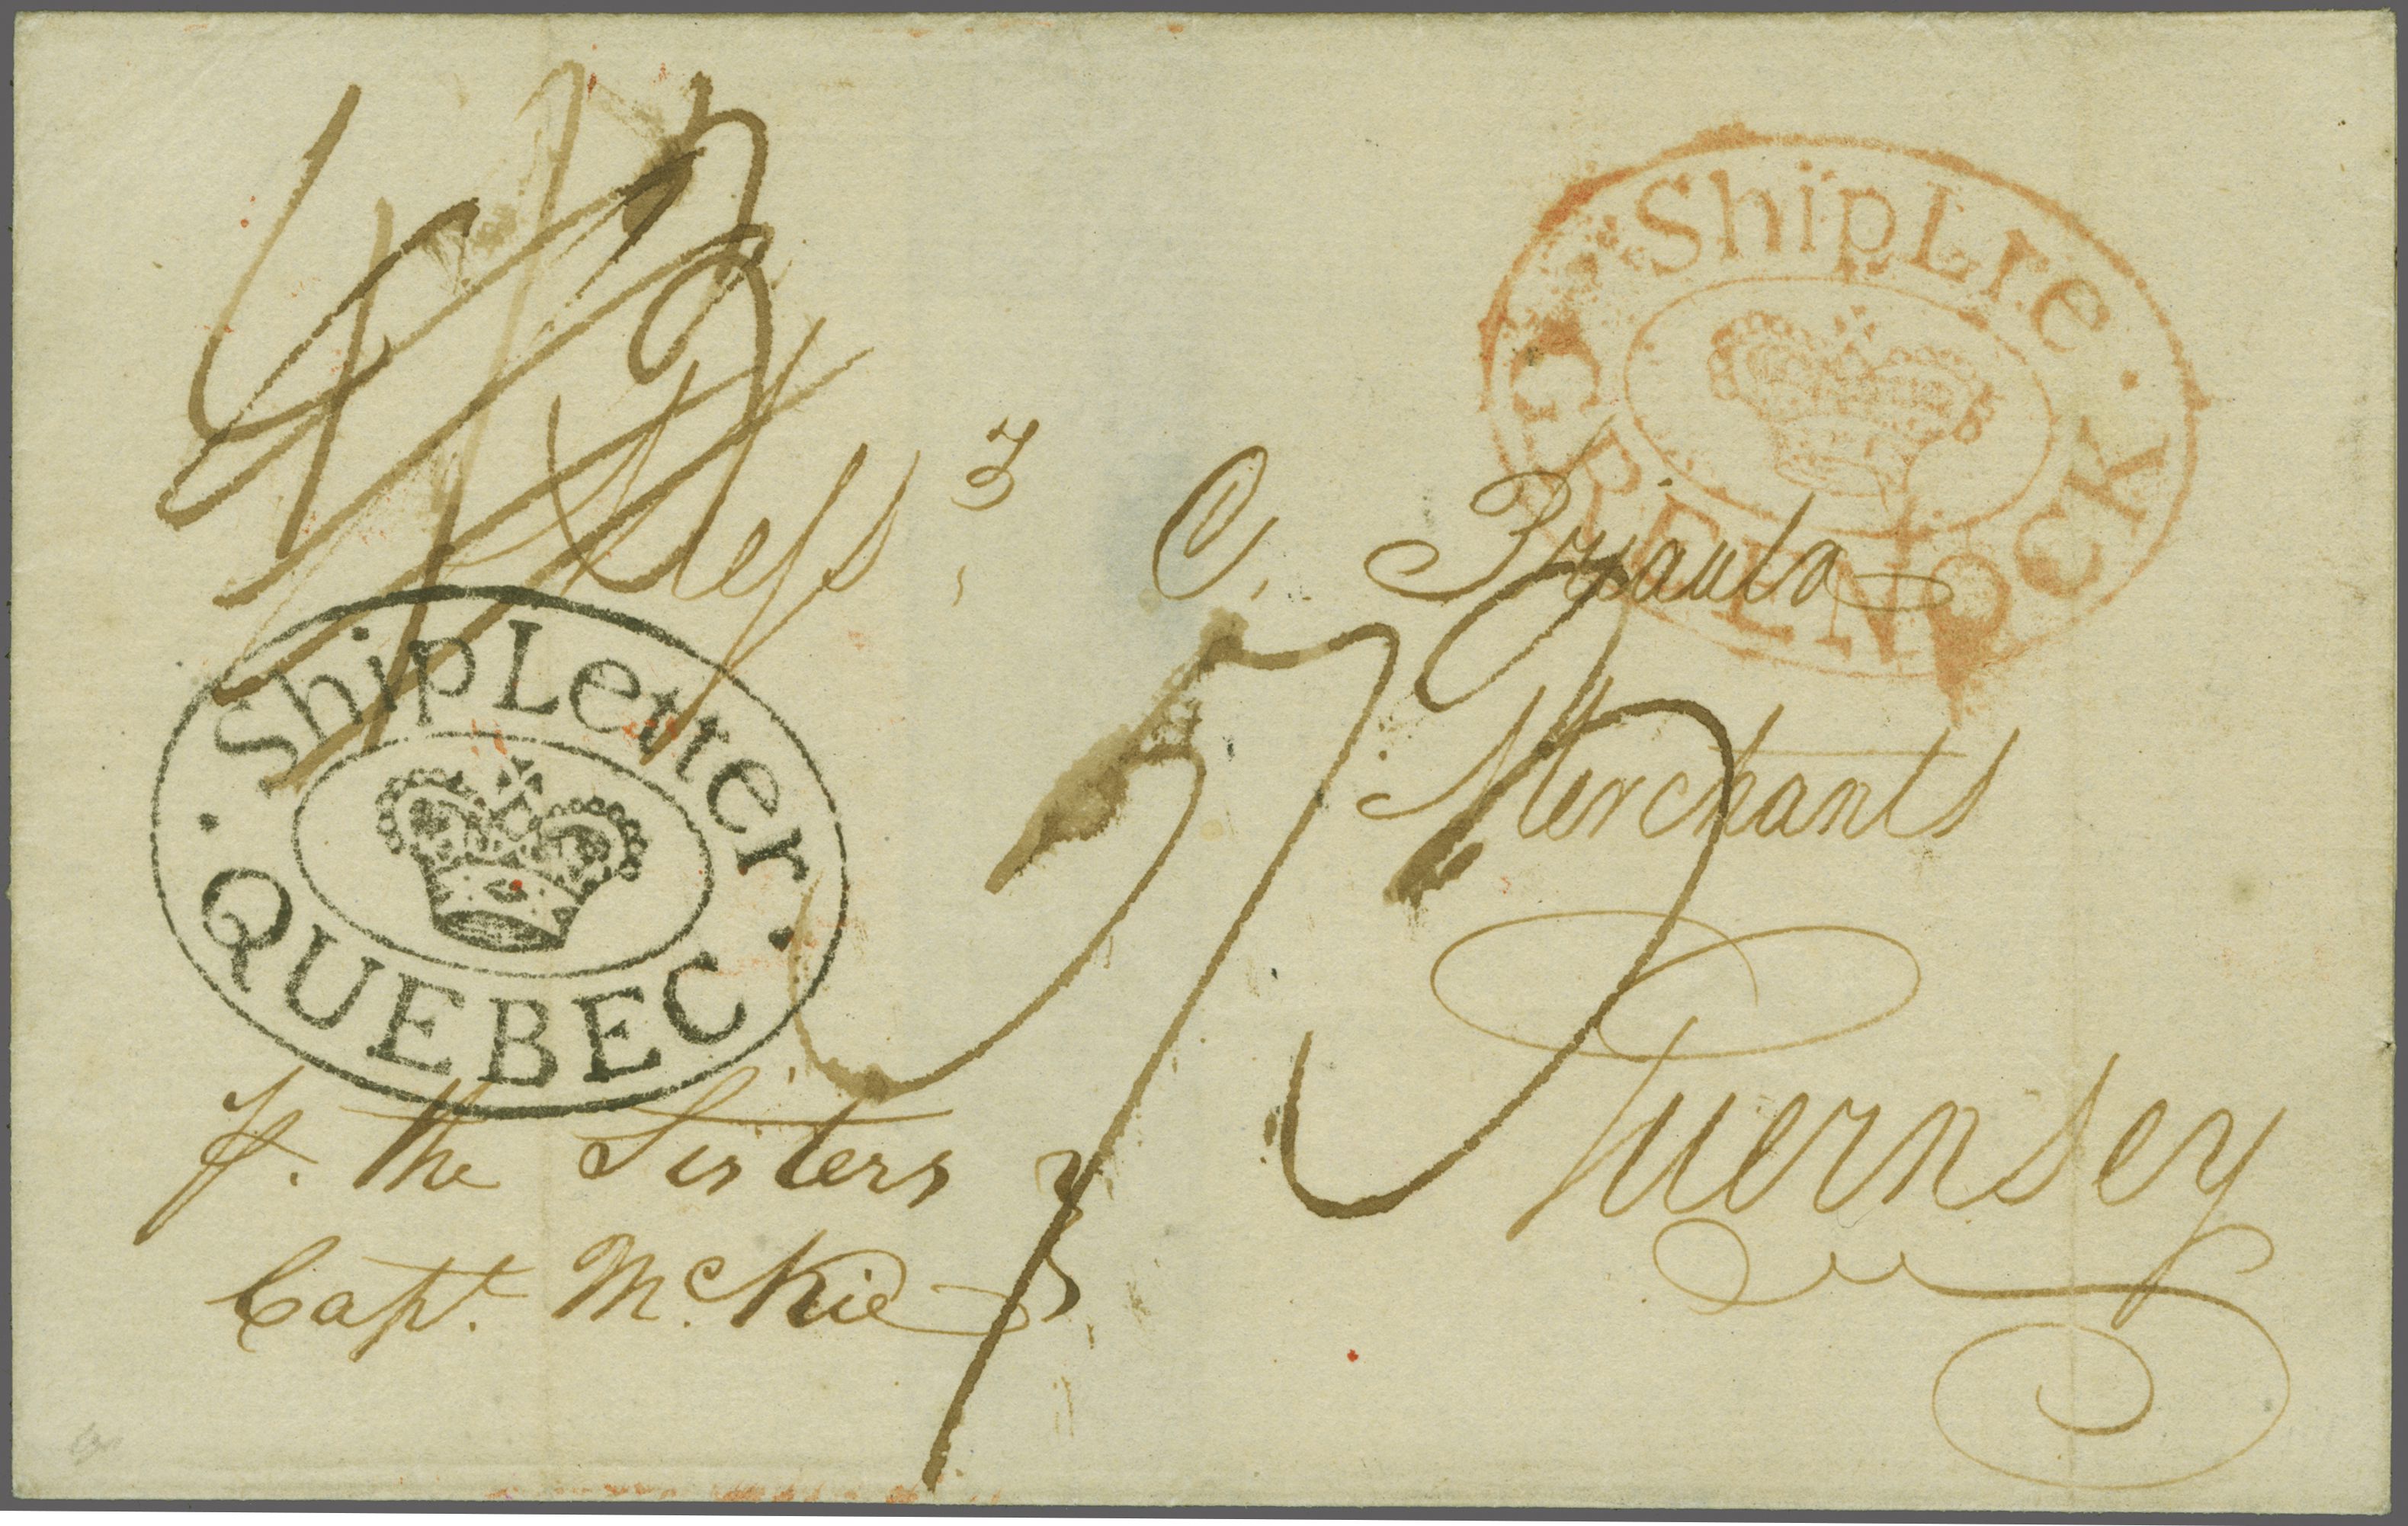 Ship Lre
GREENOCK
Mess.rs C. Priaulx
Merchants
Guernsey
Ship Letter
QUEBEC
p. the Sisters
Capt. McKie